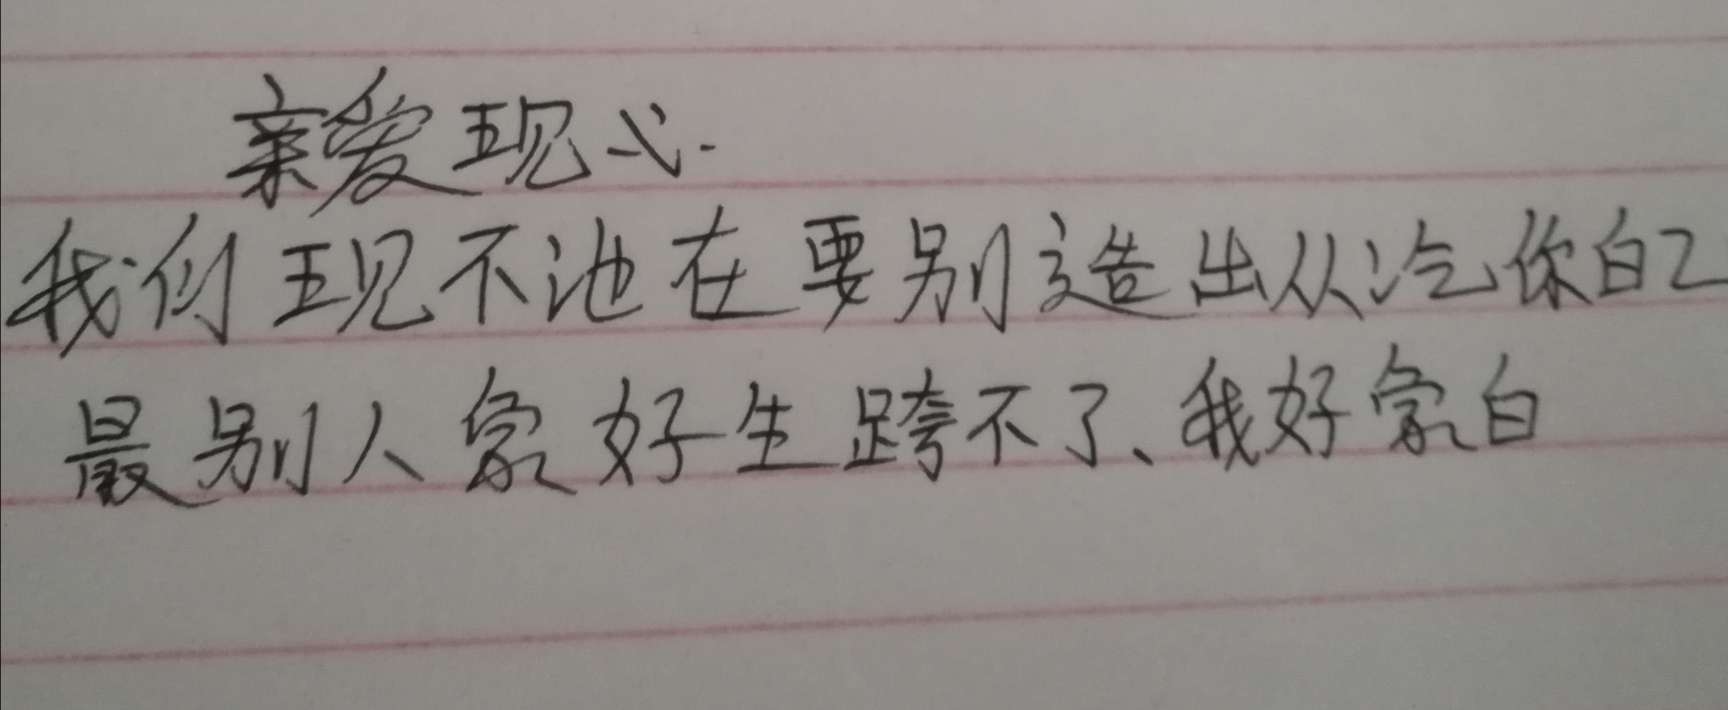 亲爱现心.
我们现不池在要别造出从冷你白己
最别人家好生跨不了、我好家白